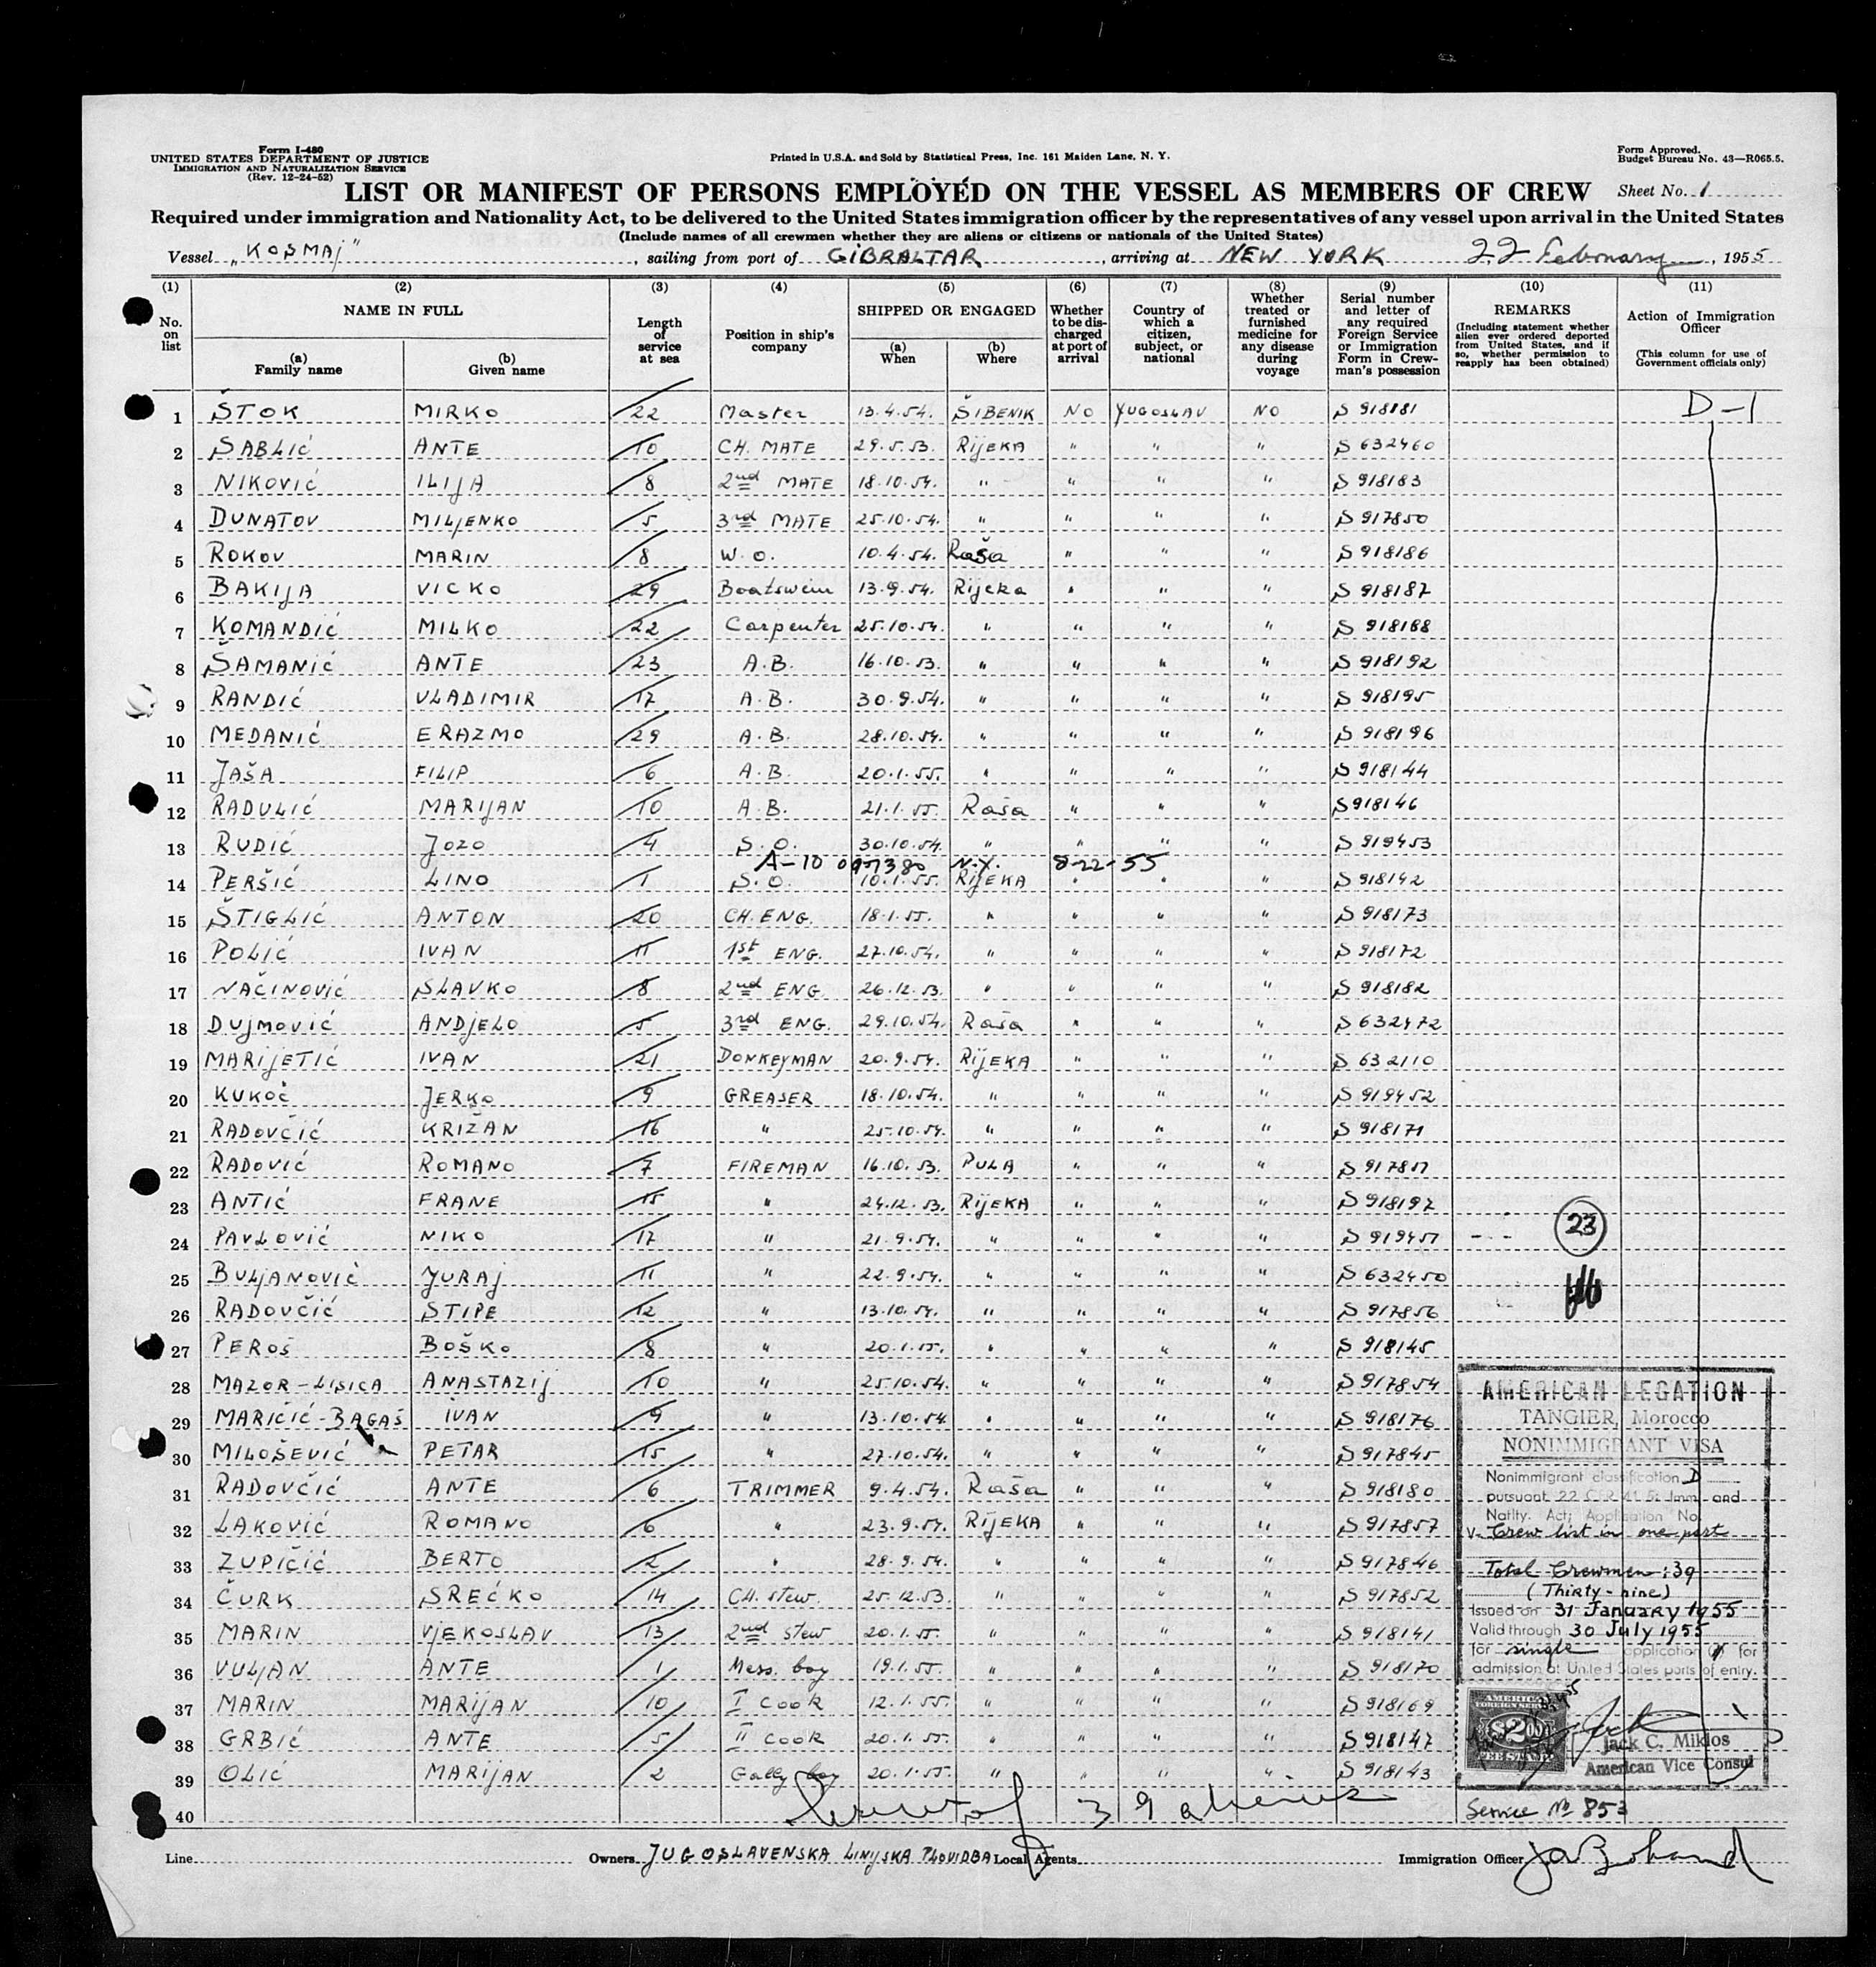 Form I-480
UNITED STATES DEPARTMENT OF JUSTICE
IMMIGRATION AND NATURALIZATION SERVICE
(Rev. 12-24-52)
Printed in U.S.A. and Sold by Statistical Press, Inc. 161 Maiden Lane, N. Y.
Form Approved.
Budget Bureau No. 43—R065.5.
LIST OR MANIFEST OF PERSONS EMPLOYED ON THE VESSEL AS MEMBERS OF CREW Sheet No. 1
Required under immigration and Nationality Act, to be delivered to the United States immigration officer by the representatives of any vessel upon arrival in the United States
(Include names of all crewmen whether they are aliens or citizens or nationals of the United States)
Vessel „KOSMAj", sailing from port of GiBRALTAR, arriving at NEW YORK 22 February, 1955
(1) No. on list
(2) NAME IN FULL
(a) Family name
(b) Given name
(3) Length of service at sea
(4) Position in ship's company
(5) SHIPPED OR ENGAGED
(a) When
(b) Where
(6) Whether to be discharged at port of arrival
(7) Country of which a citizen, subject, or national
(8) Whether treated or furnished medicine for any disease during voyage
(9) Serial number and letter of any required Foreign Service or Immigration Form in Crewman's possession
(10) REMARKS
(Including statement whether alien ever ordered deported from United States, and if so, whether permission to reapply has been obtained)
(11) Action of Immigration Officer
(This column for use of Government officials only)
1 ŠTOK MIRKO 22 Master 13.4.54. ŠIBENIK NO YUGOSLAV NO S 918181 D-1
2 SABLIĆ ANTE 10 CH. MATE 29.5.53. RijEKA " " " S 632460
3 NIKOVIĆ ILIJA 8 2nd MATE 18.10.54. " " " " S 918183
4 DUNATOV MILJENKO 5 3rd MATE 25.10.54. " " " " S 917850
5 ROKOV MARIN 8 W.O. 10.4.54. Raša " " " S 918186
6 BAKIJA VICKO 29 Boatswein 13.9.54. Rijeka " " " S 918187
7 KOMANDIĆ MILKO 22 Carpenter 25.10.54. " " " " S 918188
8 ŠAMANIĆ ANTE 23 A.B. 16.10.53. " " " " S 918192
9 RANDIĆ VLADIMIR 17 A.B. 30.9.54. " " " " S 918195
10 MEDANIĆ ERAZMO 29 A.B. 28.10.54. " " " " S 918196
11 JAŠA FILIP 6 A.B. 20.1.55. " " " " S 918144
12 RADULIĆ MARIJAN 10 A.B. 21.1.55. Raša " " " S 918146
13 RUDIĆ JOZO 4 S.O. 30.10.54. " " " " S 919453
N.Y. 8-22-55
14 PERŠIĆ LINO 1 S.O. 10.1.55. RIJEKA " " " S 918142
15 ŠTIGLIĆ ANTON 20 CH. ENG. 18.1.55. " " " " S 918173
16 POLIĆ IVAN 11 1st ENG. 27.10.54. " " " " S 918172
17 NAČINOVIĆ SLAVKO 8 2nd ENG. 26.12.53. " " " " S 918182
18 DUJMOVIĆ ANDJELO 5 3rd ENG. 29.10.54. Raša " " " S 632472
19 MARIJETIĆ IVAN 21 DONKEYMAN 20.9.54. RIJEKA " " " S 632110
20 KUKOČ JERKO 9 GREASER 18.10.54. " " " " S 919452
21 RADOVČIĆ KRIŽAN 16 " 25.10.54. " " " " S 918171
22 RADOVIĆ ROMANO 7 FIREMAN 16.10.53. PULA " " " S 917851
23 ANTIĆ FRANE 15 " 24.12.53. RIJEKA " " " S 918197
24 PAVLOVIĆ NIKO 17 " 21.9.54. " " " " S 919451 23
25 BULJANOVIĆ JURAJ 11 " 22.9.54. " " " " S 632450
26 RADOVČIĆ STIPE 12 " 13.10.54. " " " " S 917856
27 PEROŠ BOŠKO 8 " 20.1.55. " " " " S 918145
28 MAZOR-LISICA ANASTAZIJ 10 " 25.10.54. " " " " S 917854
29 MARIČIĆ-BAGAŠ IVAN 9 " 13.10.54. " " " " S 918176
30 MILOŠEVIĆ PETAR 15 " 27.10.54. " " " " S 917845
31 RADOVČIĆ ANTE 6 TRIMMER 9.4.54. Raša " " " S 918180
32 LAKOVIĆ ROMANO 6 " 23.9.54. RIJEKA " " " S 917857
33 ZUPIČIĆ BERTO 2 " 28.9.54. " " " " S 917846
34 ČURK SREĆKO 14 CH. stew. 25.12.53. " " " " S 917852
35 MARIN VJEKOSLAV 13 2nd stew 20.1.55. " " " " S 918141
36 VULJAN ANTE 1 Mess. boy 19.1.55. " " " " S 918170
37 MARIN MARIJAN 10 I cook 12.1.55. " " " " S 918169
38 GRBIĆ ANTE 5 II cook 20.1.55. " " " " S 918147
39 OLIĆ MARIJAN 2 Gally boy 20.1.55. " " " " S 918143
40 Crew of 39 aliens
AMERICAN LEGATION
TANGIER, Morocco
NONIMMIGRANT VISA
Nonimmigrant classification D
pursuant 22 CFR 41.5; Imm. and
Natlty. Act; Application No.
V- Crew list in one part
Total Crewmen: 39
(Thirty-nine)
Issued on 31 January 1955
Valid through 30 July 1955
for single application for
admission at United States ports of entry.
AMERICAN
FOREIGN SERVICE
$2.00
FEE STAMP
Jack C. Miklos
American Vice Consul
Service № 853
Line Owners JUGOSLAVENSKA LINIJSKA PLOVIDBA Local Agents Immigration Officer